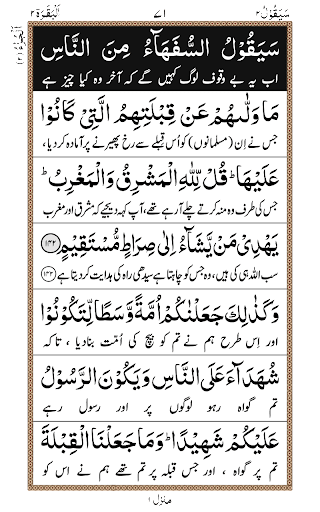 سَيَقُوْلُ ٢ ٧١ اَلْبَقَرَة ٢
سَيَقُوْلُ السُّفَهَآءُ مِنَ النَّاسِ
اب یہ بے وقوف لوگ کہیں گے کہ آخر وہ کیا چیز ہے
مَا وَلّٰىهُمْ عَنْ قِبْلَتِهِمُ الَّتِىْ كَانُوْا
جس نے اِن (مسلمانوں) کو اُس قبلے سے رخ پھیرنے پر آمادہ کردیا،
عَلَيْهَا ؕ قُلْ لِّلّٰهِ الْمَشْرِقُ وَالْمَغْرِبُ ؕ
جس کی طرف وہ منہ کرتے چلے آرہے تھے، آپ کہہ دیجیے کہ مشرق اور مغرب
يَهْدِىْ مَنْ يَّشَآءُ اِلٰى صِرَاطٍ مُّسْتَقِيْمٍ ﴿١٤٢﴾
سب اللہ ہی کی ہیں، وہ جس کو چاہتا ہے سیدھی راہ کی ہدایت کردیتا ہے ﴿١٤٢﴾
وَكَذٰلِكَ جَعَلْنٰكُمْ اُمَّةً وَّسَطًا لِّتَكُوْنُوْا
اور اِس طرح ہم نے تم کو بیچ کی اُمّت بنادیا ، تاکہ
شُهَدَآءَ عَلَى النَّاسِ وَيَكُوْنَ الرَّسُوْلُ
تم گواہ رہو لوگوں پر اور رسول رہے
عَلَيْكُمْ شَهِيْدًا ؕ وَمَا جَعَلْنَا الْقِبْلَةَ
تم پر گواہ ، اور جس قبلہ پر تم تھے ہم نے اس کو
منزل ١